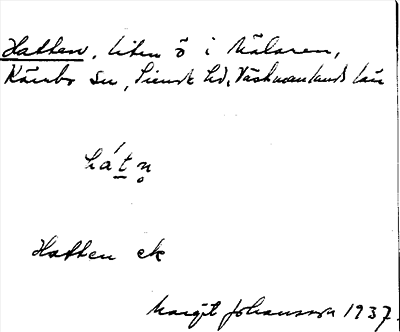 Hatten, liten ö i Mälaren,
Kärnbo sn, Siende hd, Västmanlands län
hát̲n̥
Hatten ek
Margit Johansson 1937.